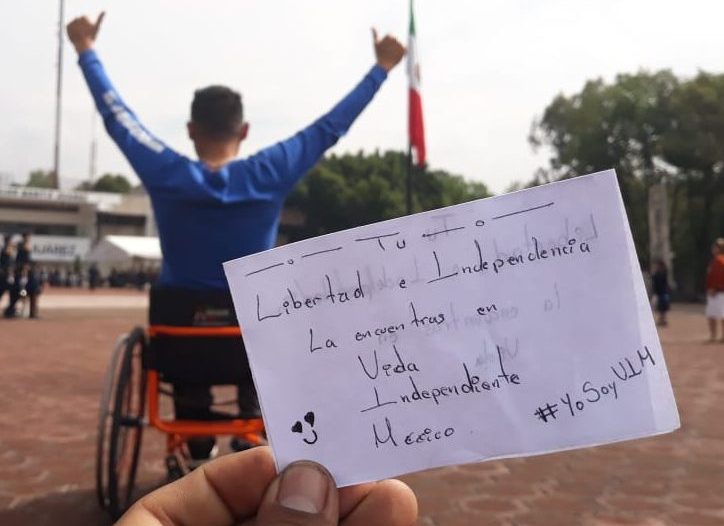 Tu
Libertad e Independencia
La encuentras en
Vida
Independiente
México
#YoSoyVIM
JUAREZ